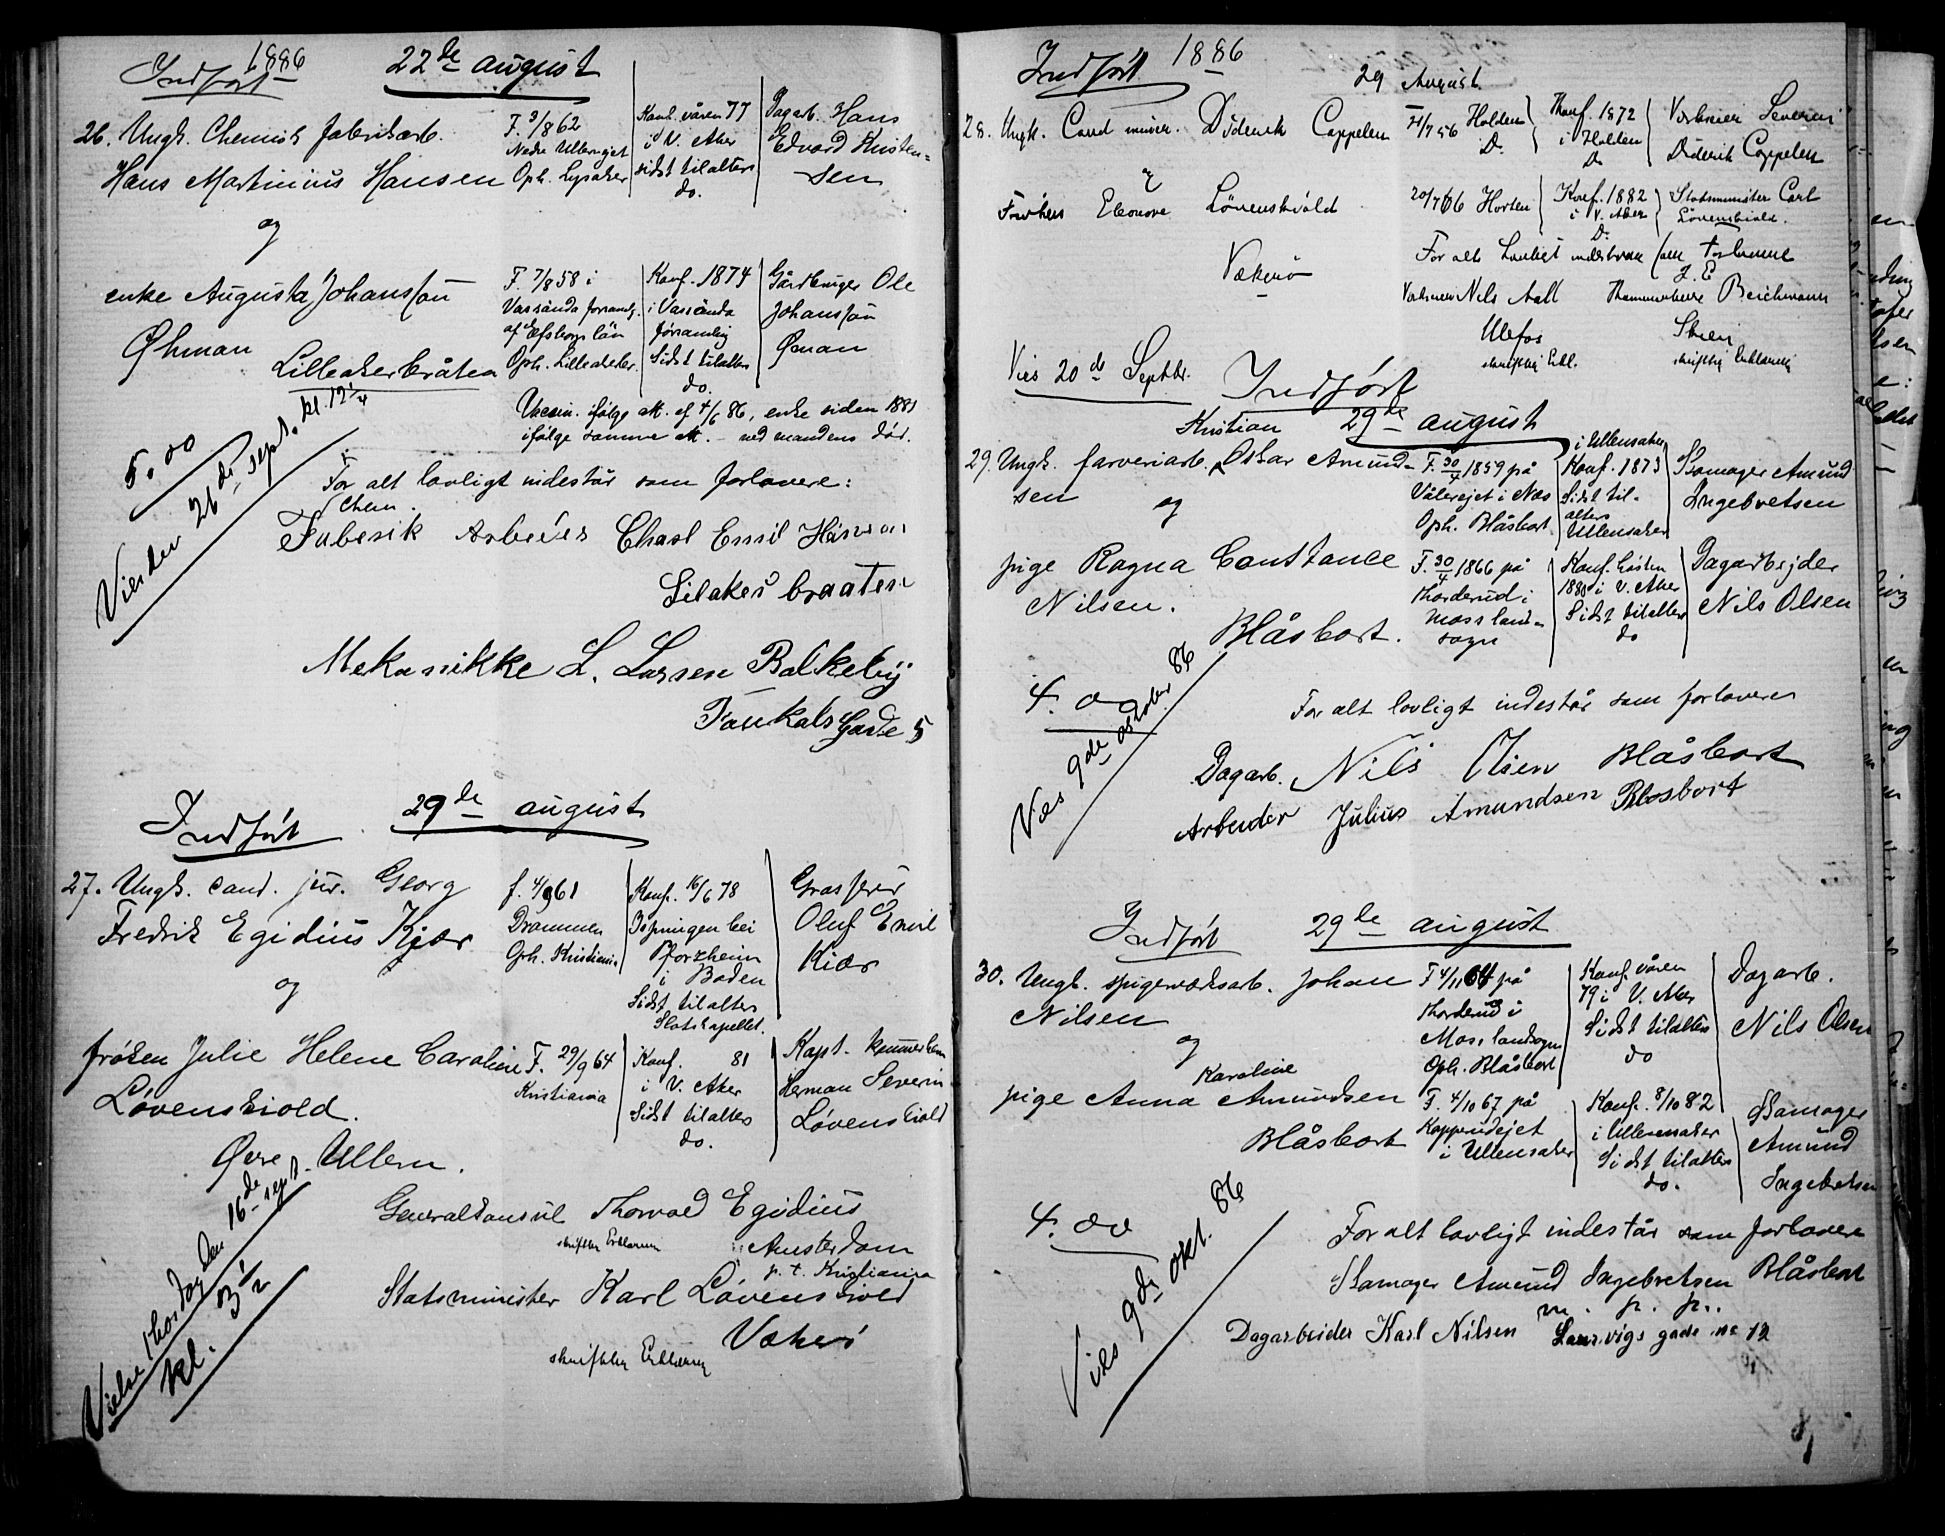 1886
Indført 22de august
26. Ungk. Chemisk fabrikarb.
Hans Martinius Hansen
F. 9/8 62
Nedre Ullernejet
Oph. Lysaker
Konf. våren 77
i V. Aker
sidst tilalters
do.
Dagarb. Hans
Edvard Kristen=
sen
og
enke Augusta Johansson
Öhman
Lilleakerbråten
F. 7/8 58 i
Vassända församl.
af Elfsborgs län
Oph. Lilleaker
Konf. 1874
i Vassända
församling
Sidst tilalters
do.
Gårdbruger Ole
Johansson
Öman
ifølge att. af 4/6 86, enke siden 1881
ifølge samme att. - ved mandens død.
5.00
Vies den 26de sept. kl. 12¼
For alt lovligt indestår som forlovere:
Chem.
Faberik Arbeider Charl Emil Hansen
Lilaker braaten
Mekanikke L. Larsen Balkeby
Gade 5
Indført 29de august
27. Ungk. cand. jur. Georg
Fredrik Egidius Kjær
f. 4/9 61
Drammen
Oph. Kristiania
Konf. 16/6 78
Ispringen bei
Pforzheim
i Baden
Sidst tilalters
Slotskapellet.
Grosserer
Oluf Emil
Kiær
og
frøken Julie Helene Caroline
Løvenskiold.
Øvre Ullern.
F. 29/9 64
Kristiania
Konf. 81
i V. Aker
Sidst tilalters
do.
Kapt. kammerherre
Herman Severin
Løvenskiold
Vielse thorsdag den 16de sept.
kl. 3½
Generalkonsul Thorvald Egidius
skriftlig Erklæring Amsterdam
p. t. Kristiania
Statsminister Karl Løvenskiold
Vækerø
skriftlig Erklæring
Indført 1886
29 August
28. Ungk. Cand miner. Diderik Cappelen
Holden
D.
Konf. 1872
i Holden
D.
Værkseier Severin
Diderik Cappelen
Frøken Eleonore Løvenskiold
Vækerø
20/7 66 Horten
Konf. 1882
i V. Aker
D.
Statsminister Carl
Løvenskiold.
For alt Lovligt indestaar som forlovere
Værkseier Nils Aall Kammerherre Reichmann
Ulefos Skien
skriftlig Erkl. skriftlig Erklæring
Vies 20de Septbr.
Indført
29de august
Kristian
29. Ungk. farveriarb. Oskar Amund-
sen
F. 30/4 1859 på
Vålerejet i Næs
Oph. Blåsbort
i Ullensaker
Konf. 1873
Sidst til-
alters
Ullensaker
Skomager Amund
Ingebretsen
og
pige Ragna Constance
Nilsen.
Blåsbort.
F. 30/4 1866 på
Thorderud i
Moss land-
sogn
Konf. høsten
1880 i V. Aker
Sidst tilalters
do
Dagarbejder
Nils Olsen
4.00
Vies 9de oktober 86
For alt lovligt indestår som forlovere
Dagarb. Nils Olsen Blåsbort
Arbeider Julius Amundsen Blosbort
Indført 29de august
30. Ungk. spigerværksarb. Johan
Nilsen
F 4/11 64 på
Thorderud i
Moss landsogn
Oph. Blåsbort
Konf. våren
79 i V. Aker
Sidst tilalters
do
Dagarb.
Nils Olsen
og
Karoline
pige Anna Amundsen
Blåsbort
F. 4/10 67 på
Kopperudejet
i Ullensaker
Konf. 8/10 82
i Ullensaker
Sidst tilalters
do.
Skomager
Amund
Ingebretsen
4.00
Vies 9de okt. 86
For alt lovligt indestår som forlovere
Skomager Amund Ingebretsen Blåsbort
m. p. p..
Dagarbeider Karl Nilsen Laurvigs gade no 12